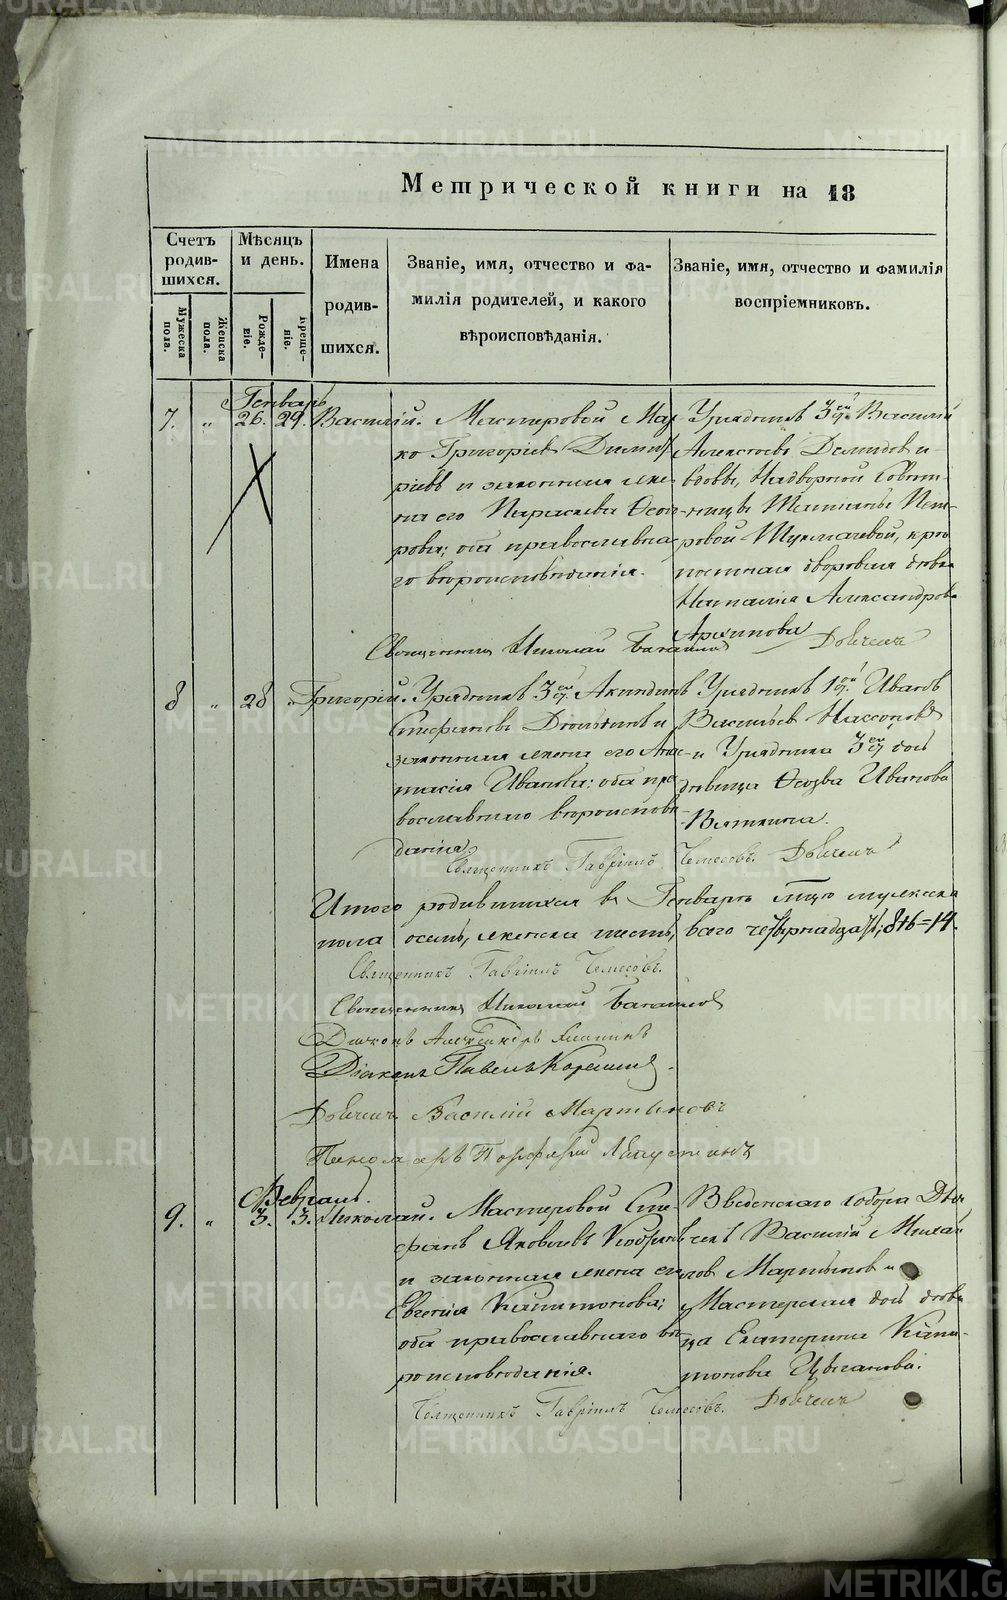 Метрической книги на 18
Счетъ родив-шихся.
Мужеска пола.
Женска пола.
Мѣсяцъ и день.
Рожде-ніе.
Креще-ніе.
Имена родив-шихся.
Званіе, имя, отчество и фа-
милія родителей, и какого
вѣроисповѣданія.
Званіе, имя, отчество и фамилія
воспріемниковъ.
Генварь
7. „ 26. 29. Василій.
Мастеровой Мар-
ко Григоріевъ Димит
ріевъ и законная же-
на его Параскева Ѳедо-
рова; оба православна-
го вѣроисповѣданія.
Урядникъ 3й ст. Василій
Алексѣевъ Демидовъ и
вдовы, Надворной Совѣт-
ницы Татіаны Пет-
ровой
постная дворовая дѣвка
Наталія Александрова
Архипова
Священникъ Николай Дьячекъ
8 „ 28 „ Григорій.
Урядникъ 3й ст.
Стефановъ и
законная жена его Ана-
тасія Иванова; оба пра-
вославнаго вѣроисповѣ-
данія.
Урядникъ 1й ст. Иванъ
Васильевъ
и Урядника 3й ст. дочь
дѣвица Иванова
Вяткина.
Священникъ Гавріилъ Чемесовъ. Дьячекъ
Итого родившихся въ Генварѣ мцѣ мужеска
пола осемь, женска шесть, всего четырнадцать; 8+6=14.
Священникъ Гавріилъ Чемесовъ.
Священникъ Николай
Діаконъ Александръ
Діаконъ Павелъ
Дьячекъ Василій Мартыновъ
Пономарь Порфирій
Февраль.
9. „ 3. 3. Николай.
Мастеровой Сте-
фанъ Яковлевъ
и законная жена его
Евгенія Капитонова;
оба православнаго вѣ-
роисповѣданія.
Введенскаго собора Дья-
чекъ Василій Михай
ловъ Мартыновъ и
Мастерская дочь дѣви
ца Екатерина Капи-
тонова Цыганова.
Священникъ Гавріилъ Чемесовъ. Дьячекъ
METRIKI.GASO-URAL.RU